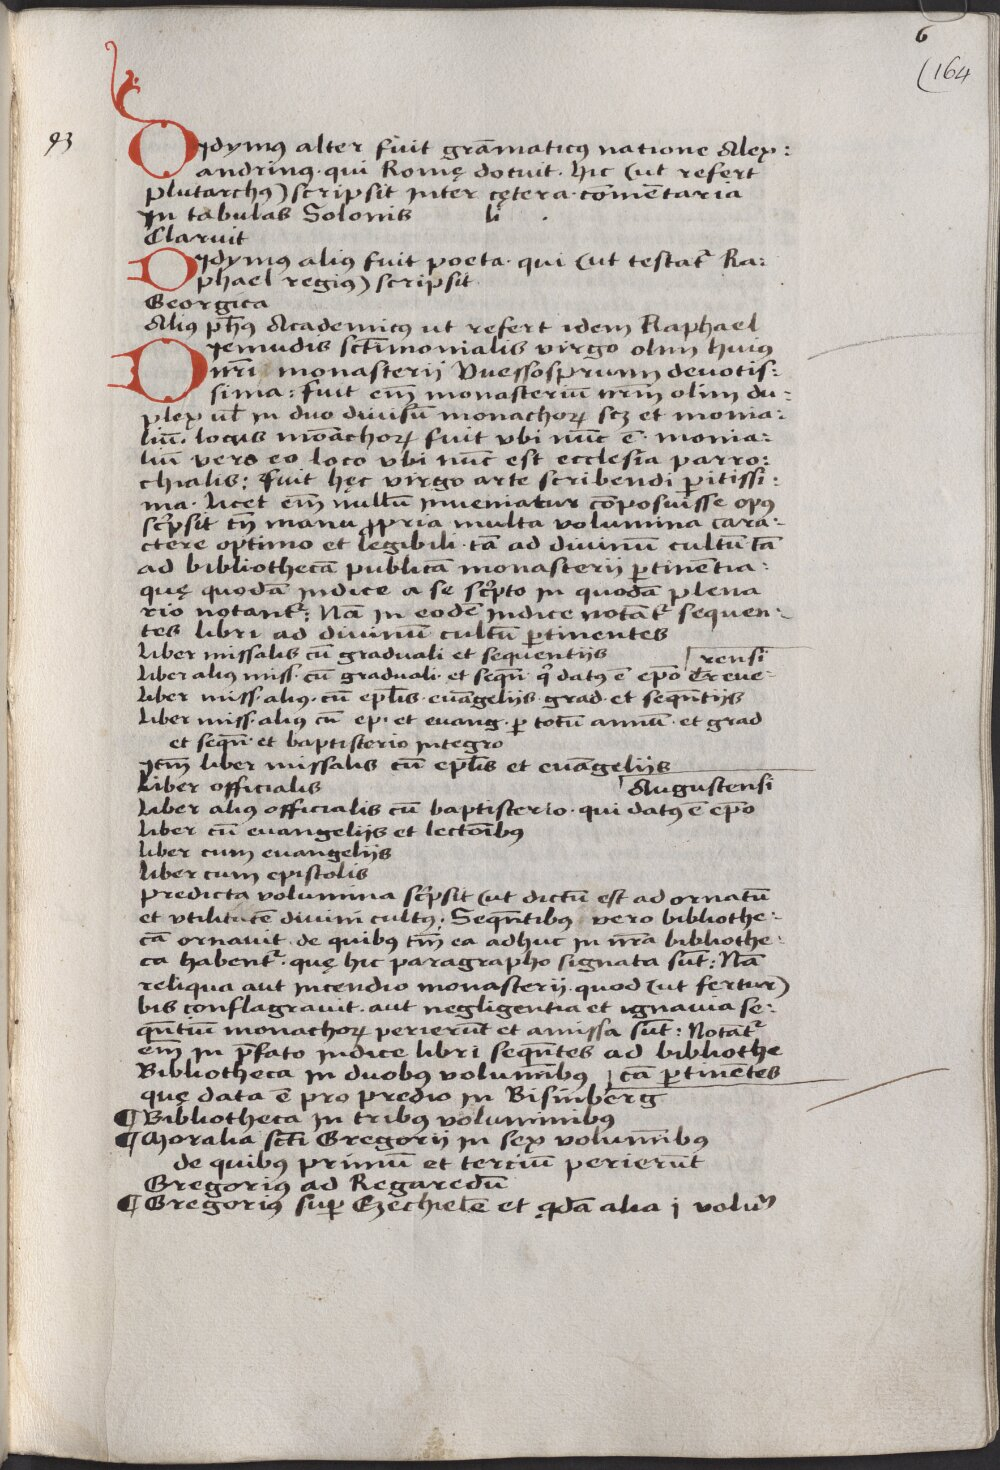 6
(164
93
Didymꝰ alter fuit grāmaticꝰ natione Alex:
andrinꝰ. qui Romę docuit. hic (ut refert
plutarchꝰ) scripsit inter cętera. comētaria
In tabulas Solonis li .
Claruit
Didymꝰ aliꝰ fuit poeta. qui (ut testatᷣ Ra:
phael regiꝰ) scripsit
Georgica
Aliꝰ ph̄ꝰ Academicꝰ ut refert idem Raphael
Diemudis sctīmonialis virgo olim huiꝰ
nr̄i monasterij Vuessosprunn deuotis:
sima: fuit em̄ monasteriū nr̄m olim du:
plex ul̄ in duo diuisū monachoꝝ scꝫ et monia:
liū. locus monachoꝝ fuit vbi nūc ē. monia:
liū vero eo loco vbi nūc est ecclesia parro:
chialis: fuit hęc virgo arte scribendi ꝑitissi:
ma. licet em̄ nullū inueniatur cōposuisse opꝰ
scp̄sit tn̄ manu ꝓpria multa volumina cara:
ctere optimo et legibili. tā ad diuinū cultū tā
ad bibliothecā publicā monasterij ꝑtinentia:
quę quodā indice a se scp̄to in quodā plena
rio notantᷣ: Nā in eodē indice notātᷣ sequen:
tes libri ad diuinū cultū ꝑtinentes
liber missalis cū graduali et sequentijs
liber aliꝰ miss. cū graduali. et seqn̄. q̄ datꝰ ē ep̄o Treue: rensi
liber miss. aliꝰ. cū epl̄is. euāgelijs. grad. et seqn̄tijs
liber miss. aliꝰ cū ep. et euang. ꝑ totū annū. et grad
et seqn̄. et baptisterio integro
Itm̄ liber missalis cū epl̄is et euāgelijs
Liber officialis
liber aliꝰ officialis cū baptisterio. qui datꝰ ē ep̄o Augustensi
liber cū euangelijs et lectōibꝰ
liber cum euangelijs
liber cum epistolis
predicta volumina scp̄sit (ut dictū est ad ornatū
et vtilitatē diuini cultꝰ: Seqn̄tibꝰ vero bibliothe:
cā ornauit. de quibꝰ tm̄ ea adhuc in nr̄a bibliothe:
ca habentᷣ. quę hic paragrapho signata sūt: Nā
reliqua aut incendio monasterij. quod (ut fertur)
bis conflagrauit. aut negligentia et ignauia se:
qn̄tiū monachoꝝ perierūt et amissa sūt: Notātᷣ
em̄ in p̄fato indice libri seqn̄tes ad bibliothe
cā ꝑtinētes
Bibliotheca in duobꝰ volumībꝰ
quę data ē pro predio in Bisinberg
¶ Bibliotheca in tribꝰ voluminibꝰ
¶ Moralia scti Gregorij in sex volumībꝰ
de quibꝰ primū et terciū perierūt
Gregoriꝰ ad Regaredū
¶ Gregoriꝰ suꝑ Ezechielē et qdā alia j volu᷑